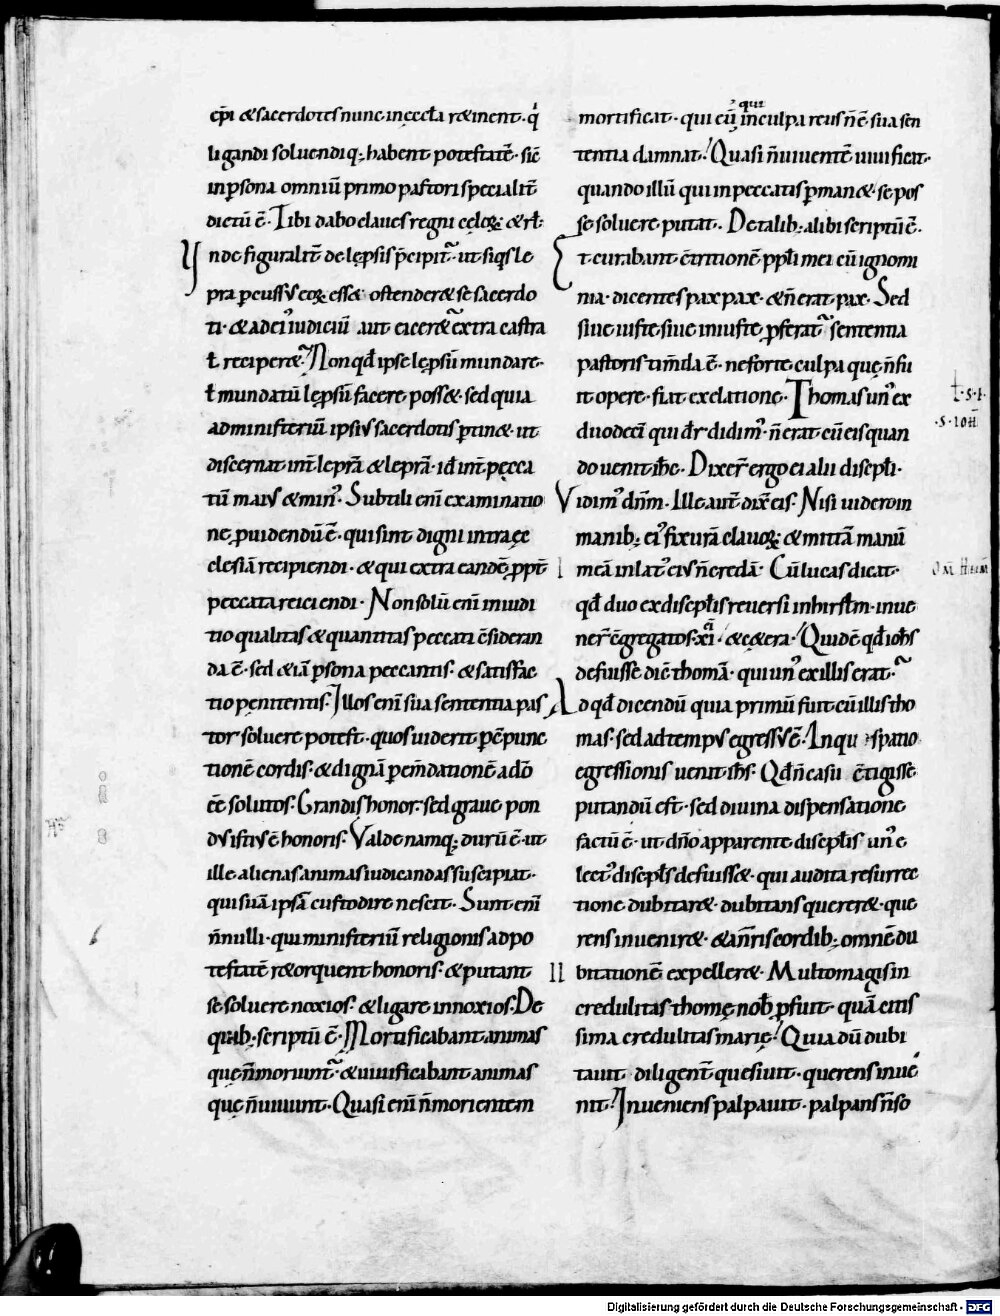 ep̄i & sacerdotes nunc in ęccl̄a r&inent· q̇
ligandi soluendiq; habent potestatē· sic̄
in p̱sona omniū primo pastori specialit̄
dictū ē· Tibi dabo claues regni cęloꝝ· & rl̄·
Vnde figuralit̄ de lep̱sis p̄cipit᷑· ut siqs le
pra p̱cussus eoꝝ· ess& ostender& se sacerdo
ti· & ad ei' iudiciū aut eicer& extra castra
ł reciper&· Non qđ ipse lep̱sū mundare·
ł mundatū lep̱sū facere poss&· sed quia
ad ministeriū ipsius sacerdotis p̱tin&· ut
discernat int̄ leprā & leprā· id̄ int̄ pecca
tū maius & min'· Subtili enī examinatio
ne p̱uidendū ē· qui sint digni intra ęc
clesiā recipiendi· & qui extra eandē p̱pt̄
peccata reiciendi· Non solū enī in iudi
tio qualitas & quantitas peccati c̄sideran
da ē· sed & iā p̱sona peccantis· & satisfac
tio penitentis· Illos enī sua sententia pas
tor soluere potest· quos uiderit p̱ c̄punc
tionē cordis· & dignā p̱ em̄dationē a dō
ēe solutos· Grandis honor· sed graue pon
dus istius ē honoris· Valde namq; durū ē· ut
ille alienas animas iudicandas suscipiat·
qui suā ipsā custodire nescit· Sunt enī
n̄nulli· qui ministeriū religionis ad po
testatē r&orquent honoris· & putant
se soluere noxios· & ligare innoxios· De
quib; scriptū ē· Mortificabant animas
quę n̄ moriunt᷑· & uiuificabant animas
quę n̄ uiuunt· Quasi enī n̄ morientem
mortificat· qui eū qui in culpa reus n̄ ē sua sen
tentia damnat· Quasi n̄ uiuentē uiuificat·
quando illū qui in peccatis p̱man& se pos
se soluere putat· De talib; alibi scriptū ē·
Et curabant c̄tritionē pp̄li mei cū ignomi
nia· dicentes pax pax· & n̄ erat pax· Sed
siue iuste siue iniuste p̱ferat᷑ sententia
pastoris tim̄da ē· ne forte culpa quę n̄ fu
it opere· fiat ex elatione· Thomas un' ex
duodecī qui dr̄ didim'· n̄ erat cū eis quan
do uenit ih̄c· Dixer̄ ergo ei alii discip̄li·
Vidim' dn̄m· Ille aut̄ dix̄ eis· Nisi uidero in
manib; ei' fixurā clauoꝝ· & mittā manū
meā in lat' eius n̄ credā· Cū lucas dicat·
qđ duo ex discip̄lis reuersi in hirsl̄m· inue
ner̄ c̄gregatos· xi· & c&era· Quid ē qđ ioh̄s
defuisse dic̄ thomā· qui un' ex illis erat·
Ad qđ dicendū quia primū fuit cū illis tho
mas· sed ad tempus egressus ē· In qu spatio
egressionis uenit ih̄s· Qđ n̄ casu c̄tigisse
putandū est· sed diuina dispensatione
factū ē· ut dn̄o apparente discip̄lis un' e
lect' discip̄ls defuiss&· qui audita resurrec
tione dubitar&· dubitans quærer&· que
rens inuenir&· & a nr̄is cordib; omnē du
bitationē expeller&· Multo magis in
credulitas thomę nob̄ p̱fuit· quā citis
sima credulitas marię· Quia dū dubi
tauit diligent̄ quesiuit· querens inue
nit· Inueniens palpauit· palpans n̄ so
t·s·I·
·S·IOH̄